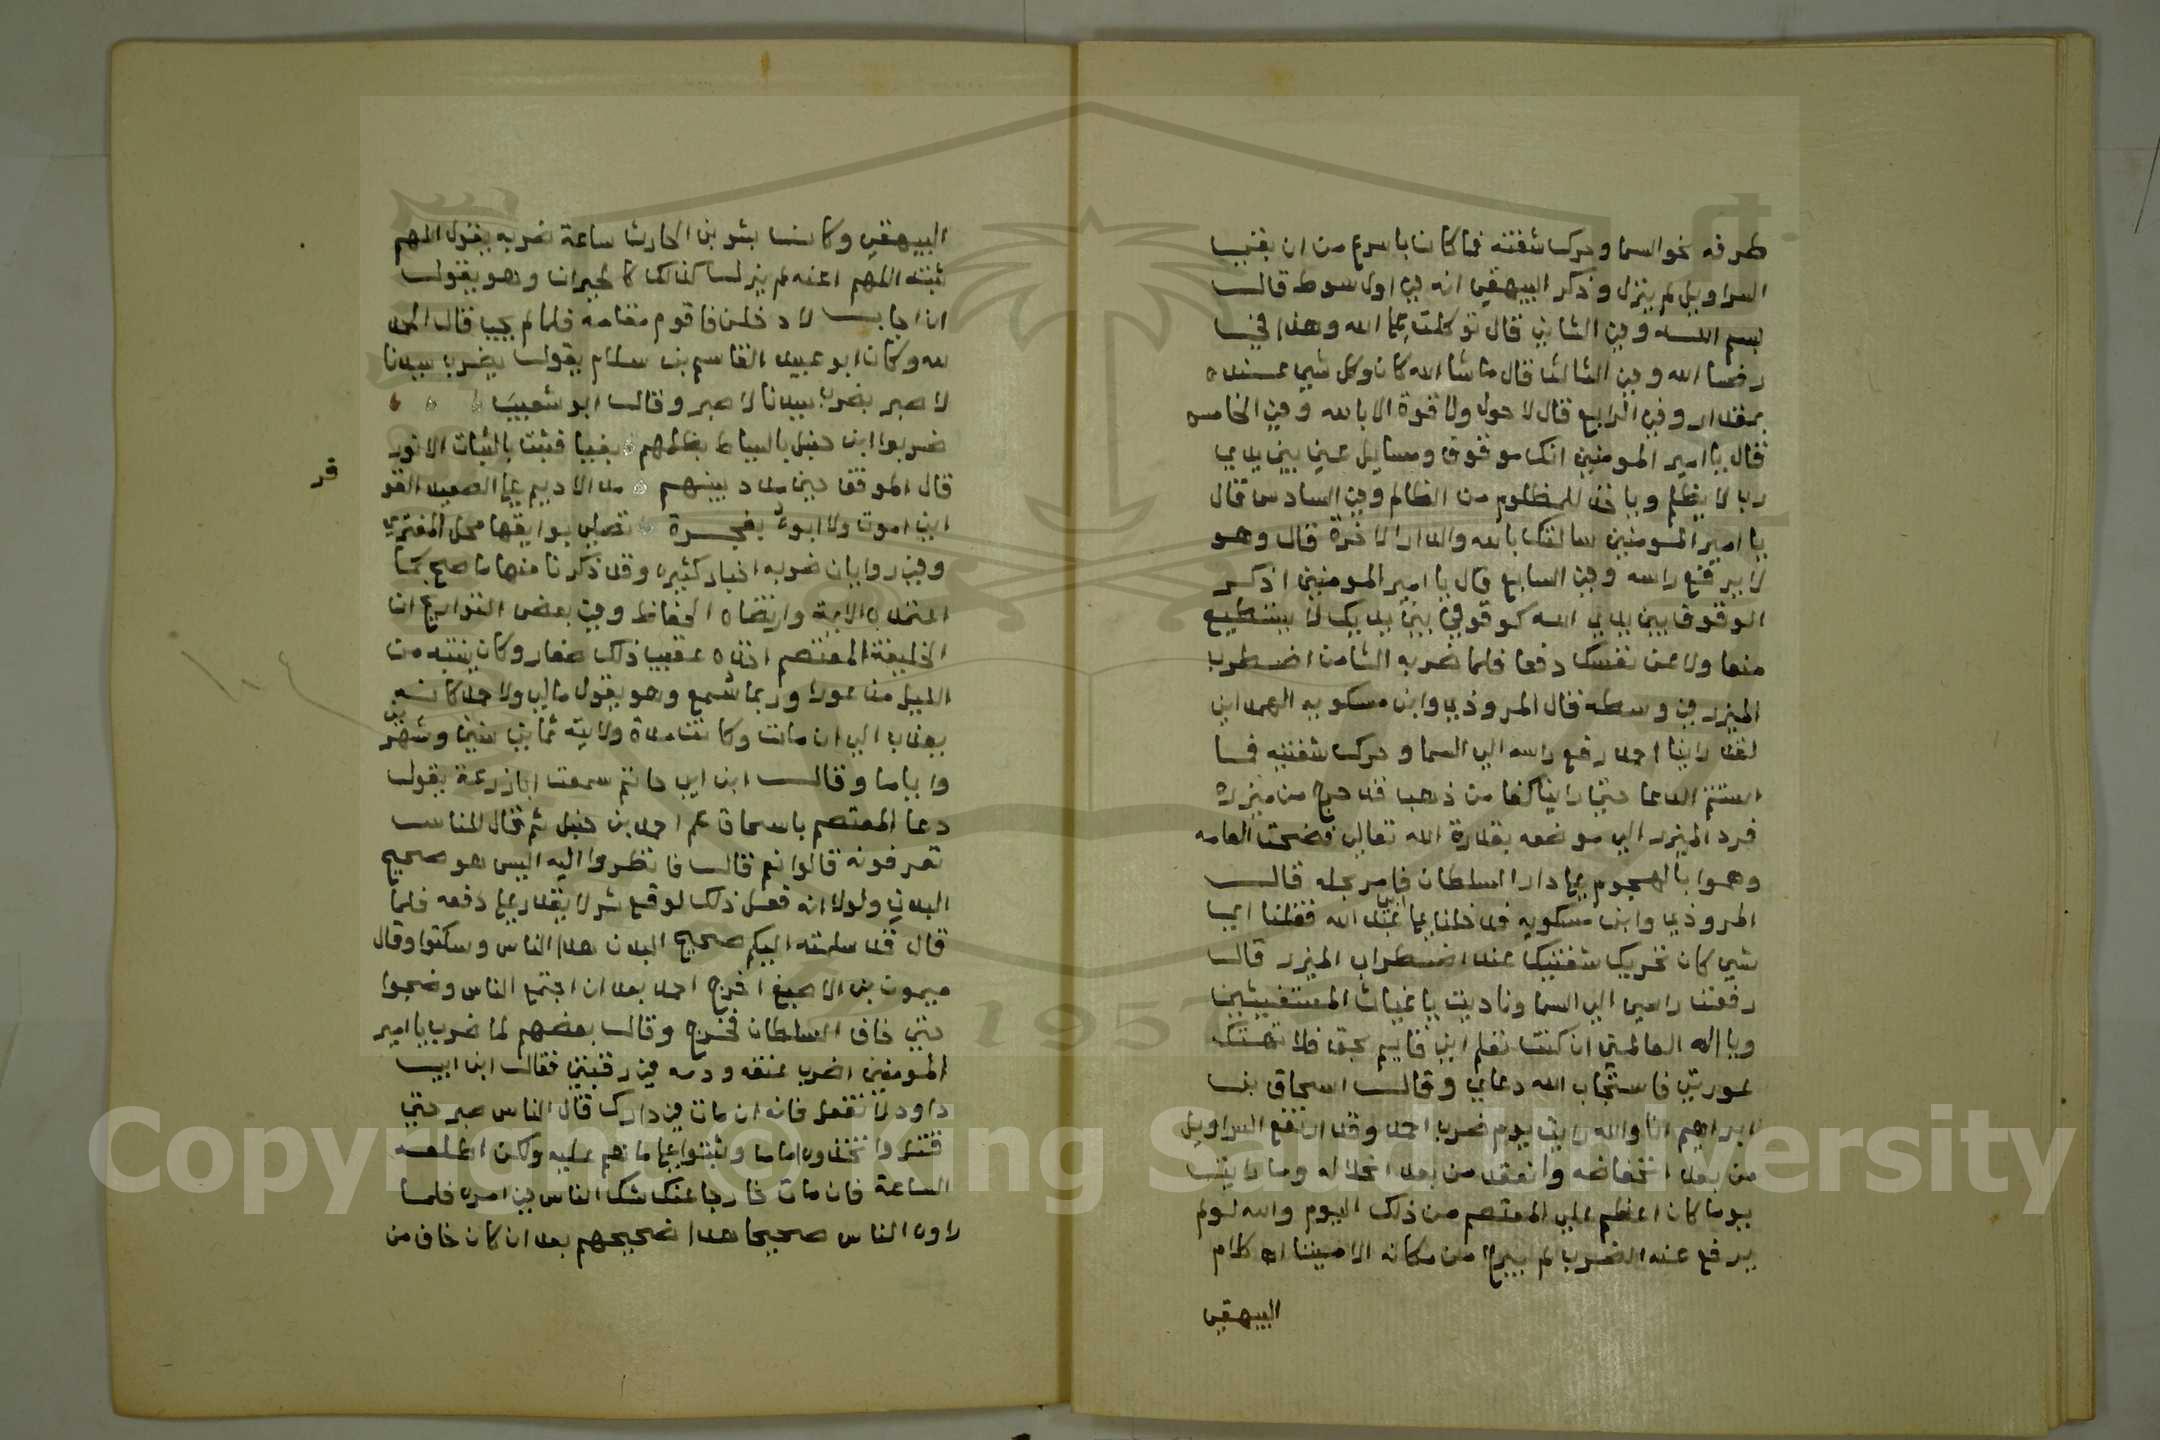 طرفه نحو السما وحرك شفتيه فما كان باسرع من ان بقي
السراويل لم ينزل وذكر البيهقي انه في اول سوط قال
بسم الله وفي الثاني قال توكلت على الله وهذا في
رضا الله وفي الثالث قال ما شا الله كان وكل شي عنده
بمقدار وفي الرابع قال لا حول ولا قوة الا بالله وفي الخامس
قال يا امير المومنين انك موقوف ومسايل عني بين يدي
رب لا يظلم وياخذ للمظلوم من الظالم وفي السادس قال
يا امير المومنين سالتك بالله والدار الاخرة قال وهو
لا يرفع راسه وفي السابع قال يا امير المومنين اذكر
الوقوف بين يدي الله كوقوفي بين يديك لا يستطيع
منعا ولا عن نفسك دفعا فلما ضربه الثامن اضطرب
الميزر في وسطه قال المروذي وابن مسكويه الهمداني
لقد راينا احمد رفع راسه الي السما وحرك شفتيه فما
استتم الدعا حتي راينا كفا من ذهب قد خرج من ميزره
فرد الميزر الي موضعه بقدرة الله تعالي فضجت العامه
وهموا بالهجوم علي دار السلطان فامر بحله قال
المروذي وابن مسكويه فدخلنا علي عبد الله فقلنا اي
شي كان تحريك شفتيك عند اضطراب الميزر قال
رفعت راسي الي السما وناديت يا غياث المستغيثين
ويا اله العالمين ان كنت تعلم اني قايم بحق فلا تهتك
عورتي فاستجاب الله دعاي وقال اسحاق بن
ابراهيم انا والله رايت يوم ضرب احمد وقد ارتفع السراويل
من بعد انخفاضه وانعقد من بعد انحلاله وما رايت
يوما كان اعظم علي المعتصم من ذلك اليوم والله لو لم
يرفع عنه الضرب لم يبرح من مكانه الا ميتا اه كلام
البيهقي
البيهقي وكان بشر بن الحارث ساعة ضربه يقول اللهم
ثبته اللهم اعنه لم يزل كذلك كالحيران وهو يقول
ان اجاب لادخلن فاقوم مقامه فلما لم يجب قال الحمد
لله وكان ابو عبيد القاسم بن سلام يقول يضرب سيدنا
لا صبر يضرب سيدنا لا صبر وقال ابو شعيب
ضربوا ابن حنبل بالسياط بظلمهم بغيا فثبت بالثبات الانور
قال الموفق حين مدد بينهم مد الاديم علي الصعيد القر
قر
اني اموت ولا ابوء بفجرة تصلي بوايقها محل المفتري
وفي روايات ضربه اخبار كثيره وقد ذكرنا منها ما صح كما
اعتمده الايمة وارتضاه الحفاظ وفي بعض التواريخ ان
الخليفة المعتصم اخذه عقيب ذلك صغار وكان ينتبه من
الليل مذعورا وربما سمع وهو يقول مالي ولاحمد كانه
يعذب الي ان مات وكانت مدة ولايته ثماني سنين وشهرين
واياما وقال ابن ابي حاتم سمعت ابا زرعة يقول
دعا المعتصم باسحاق عم احمد بن حنبل ثم قال للناس
تعرفونه قالوا نعم قال فانظروا اليه اليس هو صحيح
البدن ولولا انه فعل ذلك لوقع شر لا يقدر علي دفعه فلما
قال قد سلمته اليكم صحيح البدن هدا الناس وسكتوا وقال
ميمون بن الاصبغ اخرج احمد بعد ان اجتمع الناس وضجوا
حتي خاف السلطان فخرج وقال بعضهم لما ضرب يا امير
المومنين اضرب عنقه ودمه في رقبتي فقال ابن ابي
داود لا تفعل فانه ان مات في دارك قال الناس صبر حتي
قتل واتخذوه اماما وثبتوا علي ما هم عليه ولكن اطلعه
الساعة فان مات خارجا عنك شك الناس في امره فلما
راوه الناس صحيحا هدا ضجيجهم بعد ان كان خاف من
Copyright © King Saud University
1957